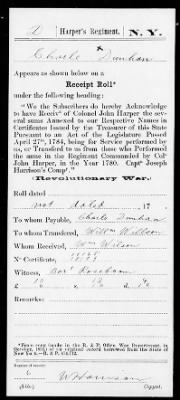 D | Harper's Regiment. | N. Y.
Charle Dunhan
Appears as shown below on a
Receipt Roll*
under the following heading:
"We the Subscribers do hereby Acknowledge
to have Receiv'd of Colonel John Harper the
several sums Annexed to our Inspective Names in
Certificates Issued by the Treasurer of the State
Pursuant to an Act of the Legislature Passed
April 27th, 1784, being for Service performed by
us, or Transfered to us from those who Performed
the same in the Regiment Commanded by Col°
John Harper, in the Year 1780. Capt° Joseph
Harrison's Comp'."
(Revolutionary War.)
Roll dated
not dated, 17
To whom Payable, Charle Dunhan
To whom Transferred, Willm Willson
Whom Received, Wm Wilson
N° Certificate,
Witness, Bart Roseboom
£
Remarks:
*True copy made in the R. & P. Office War Department, in
from the State of
New York—R. & P.
W Harrison
Copyist.